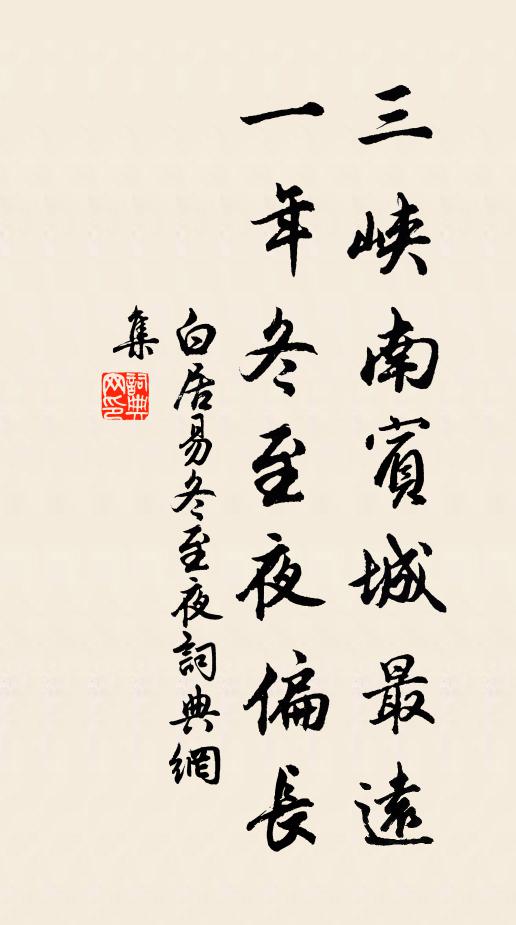 三峽南賓城最遠
一年冬至夜偏長
白居易冬至夜詞典網
集
詞典網印